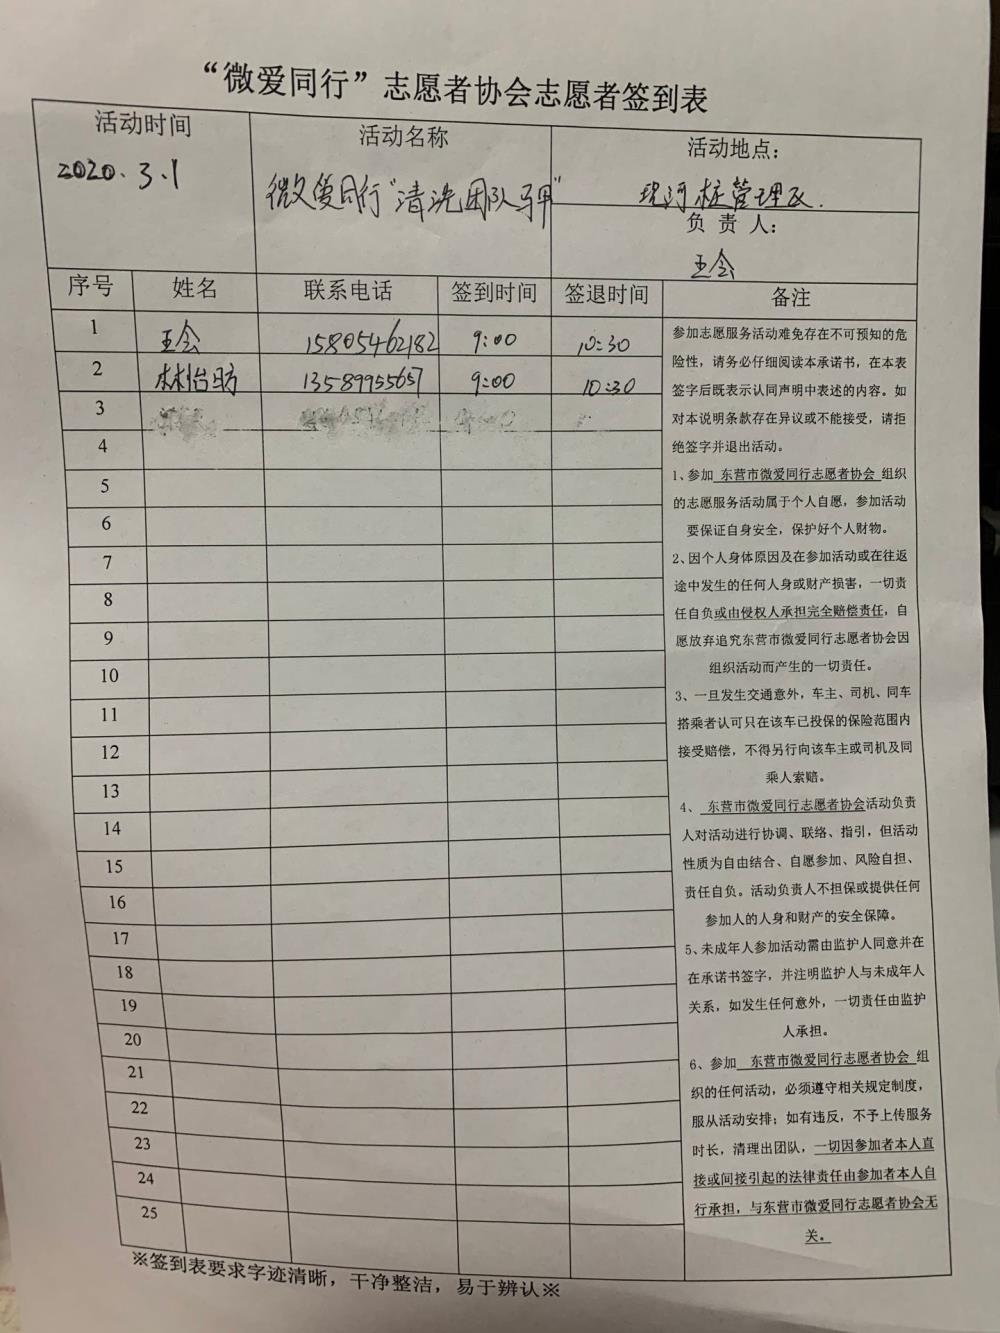 “微爱同行”志愿者协会志愿者签到表
活动时间
2020.3.1
活动名称
微爱同行“清洗团队马甲”
活动地点：
现河桩管理区.
负 责 人：
王会
序号 姓名 联系电话 签到时间 签退时间 备注
1 王会 15805462182 9:00 10:30
2 林怡昉 13589955657 9:00 10:30
3
4
5
6
7
8
9
10
11
12
13
14
15
16
17
18
19
20
21
22
23
24
25
参加志愿服务活动难免存在不可预知的危
险性，请务必仔细阅读本承诺书，在本表
签字后既表示认同声明中表述的内容。如
对本说明条款存在异议或不能接受，请拒
绝签字并退出活动。
1、参加 东营市微爱同行志愿者协会 组织
的志愿服务活动属于个人自愿，参加活动
要保证自身安全，保护好个人财物。
2、因个人身体原因及在参加活动或在往返
途中发生的任何人身或财产损害，一切责
任自负或由侵权人承担完全赔偿责任，自
愿放弃追究东营市微爱同行志愿者协会因
组织活动而产生的一切责任。
3、一旦发生交通意外，车主、司机、同车
搭乘者认可只在该车已投保的保险范围内
接受赔偿，不得另行向该车主或司机及同
乘人索赔。
4、 东营市微爱同行志愿者协会活动负责
人对活动进行协调、联络、指引，但活动
性质为自由结合、自愿参加、风险自担、
责任自负。活动负责人不担保或提供任何
参加人的人身和财产的安全保障。
5、未成年人参加活动需由监护人同意并在
在承诺书签字，并注明监护人与未成年人
关系，如发生任何意外，一切责任由监护
人承担。
6、参加 东营市微爱同行志愿者协会 组
织的任何活动，必须遵守相关规定制度，
服从活动安排；如有违反，不予上传服务
时长，清理出团队，一切因参加者本人直
接或间接引起的法律责任由参加者本人自
行承担，与东营市微爱同行志愿者协会无
关。
※签到表要求字迹清晰，干净整洁，易于辨认※